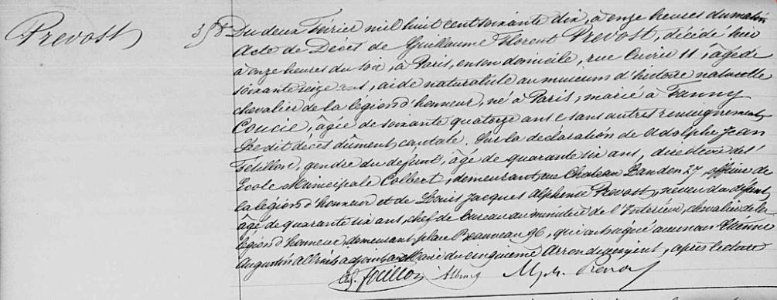 Prevost
358 Du deux Février mil huit cent soixante dix, à onze heures du matin
Acte de Décès de Guillaume Florent Prévost, décédé hier
à onze heures du soir, à Paris, en son domicile, rue Cuvier 11, âgé de
soixante seize ans, aide naturaliste au museum d'histoire naturelle
chevalier de la légion d'honneur, né à Paris, marié à Fanny
Coucie, âgée de soixante quatorze ans sans autres renseignements
Le dit décès dûment constaté. Sur la déclaration de Adolphe Jean
Fétillon, gendre du défunt, âgé de quarante six ans, directeur de l'
Ecole Municipale Colbert, demeurant rue Chateau Landon 27 officier de
la légion d'honneur et de Louis Jacques Alphonse Prévost, neveu du défunt,
âgé de quarante six ans, chef de bureau au ministère de l'Intérieur, chevalier de la
légion d'honneur demeurant place Beauveau 96, qui ont signé avec nous Etienne
Augustin adjoint au Maire du cinquième Arrondissement, après lecture